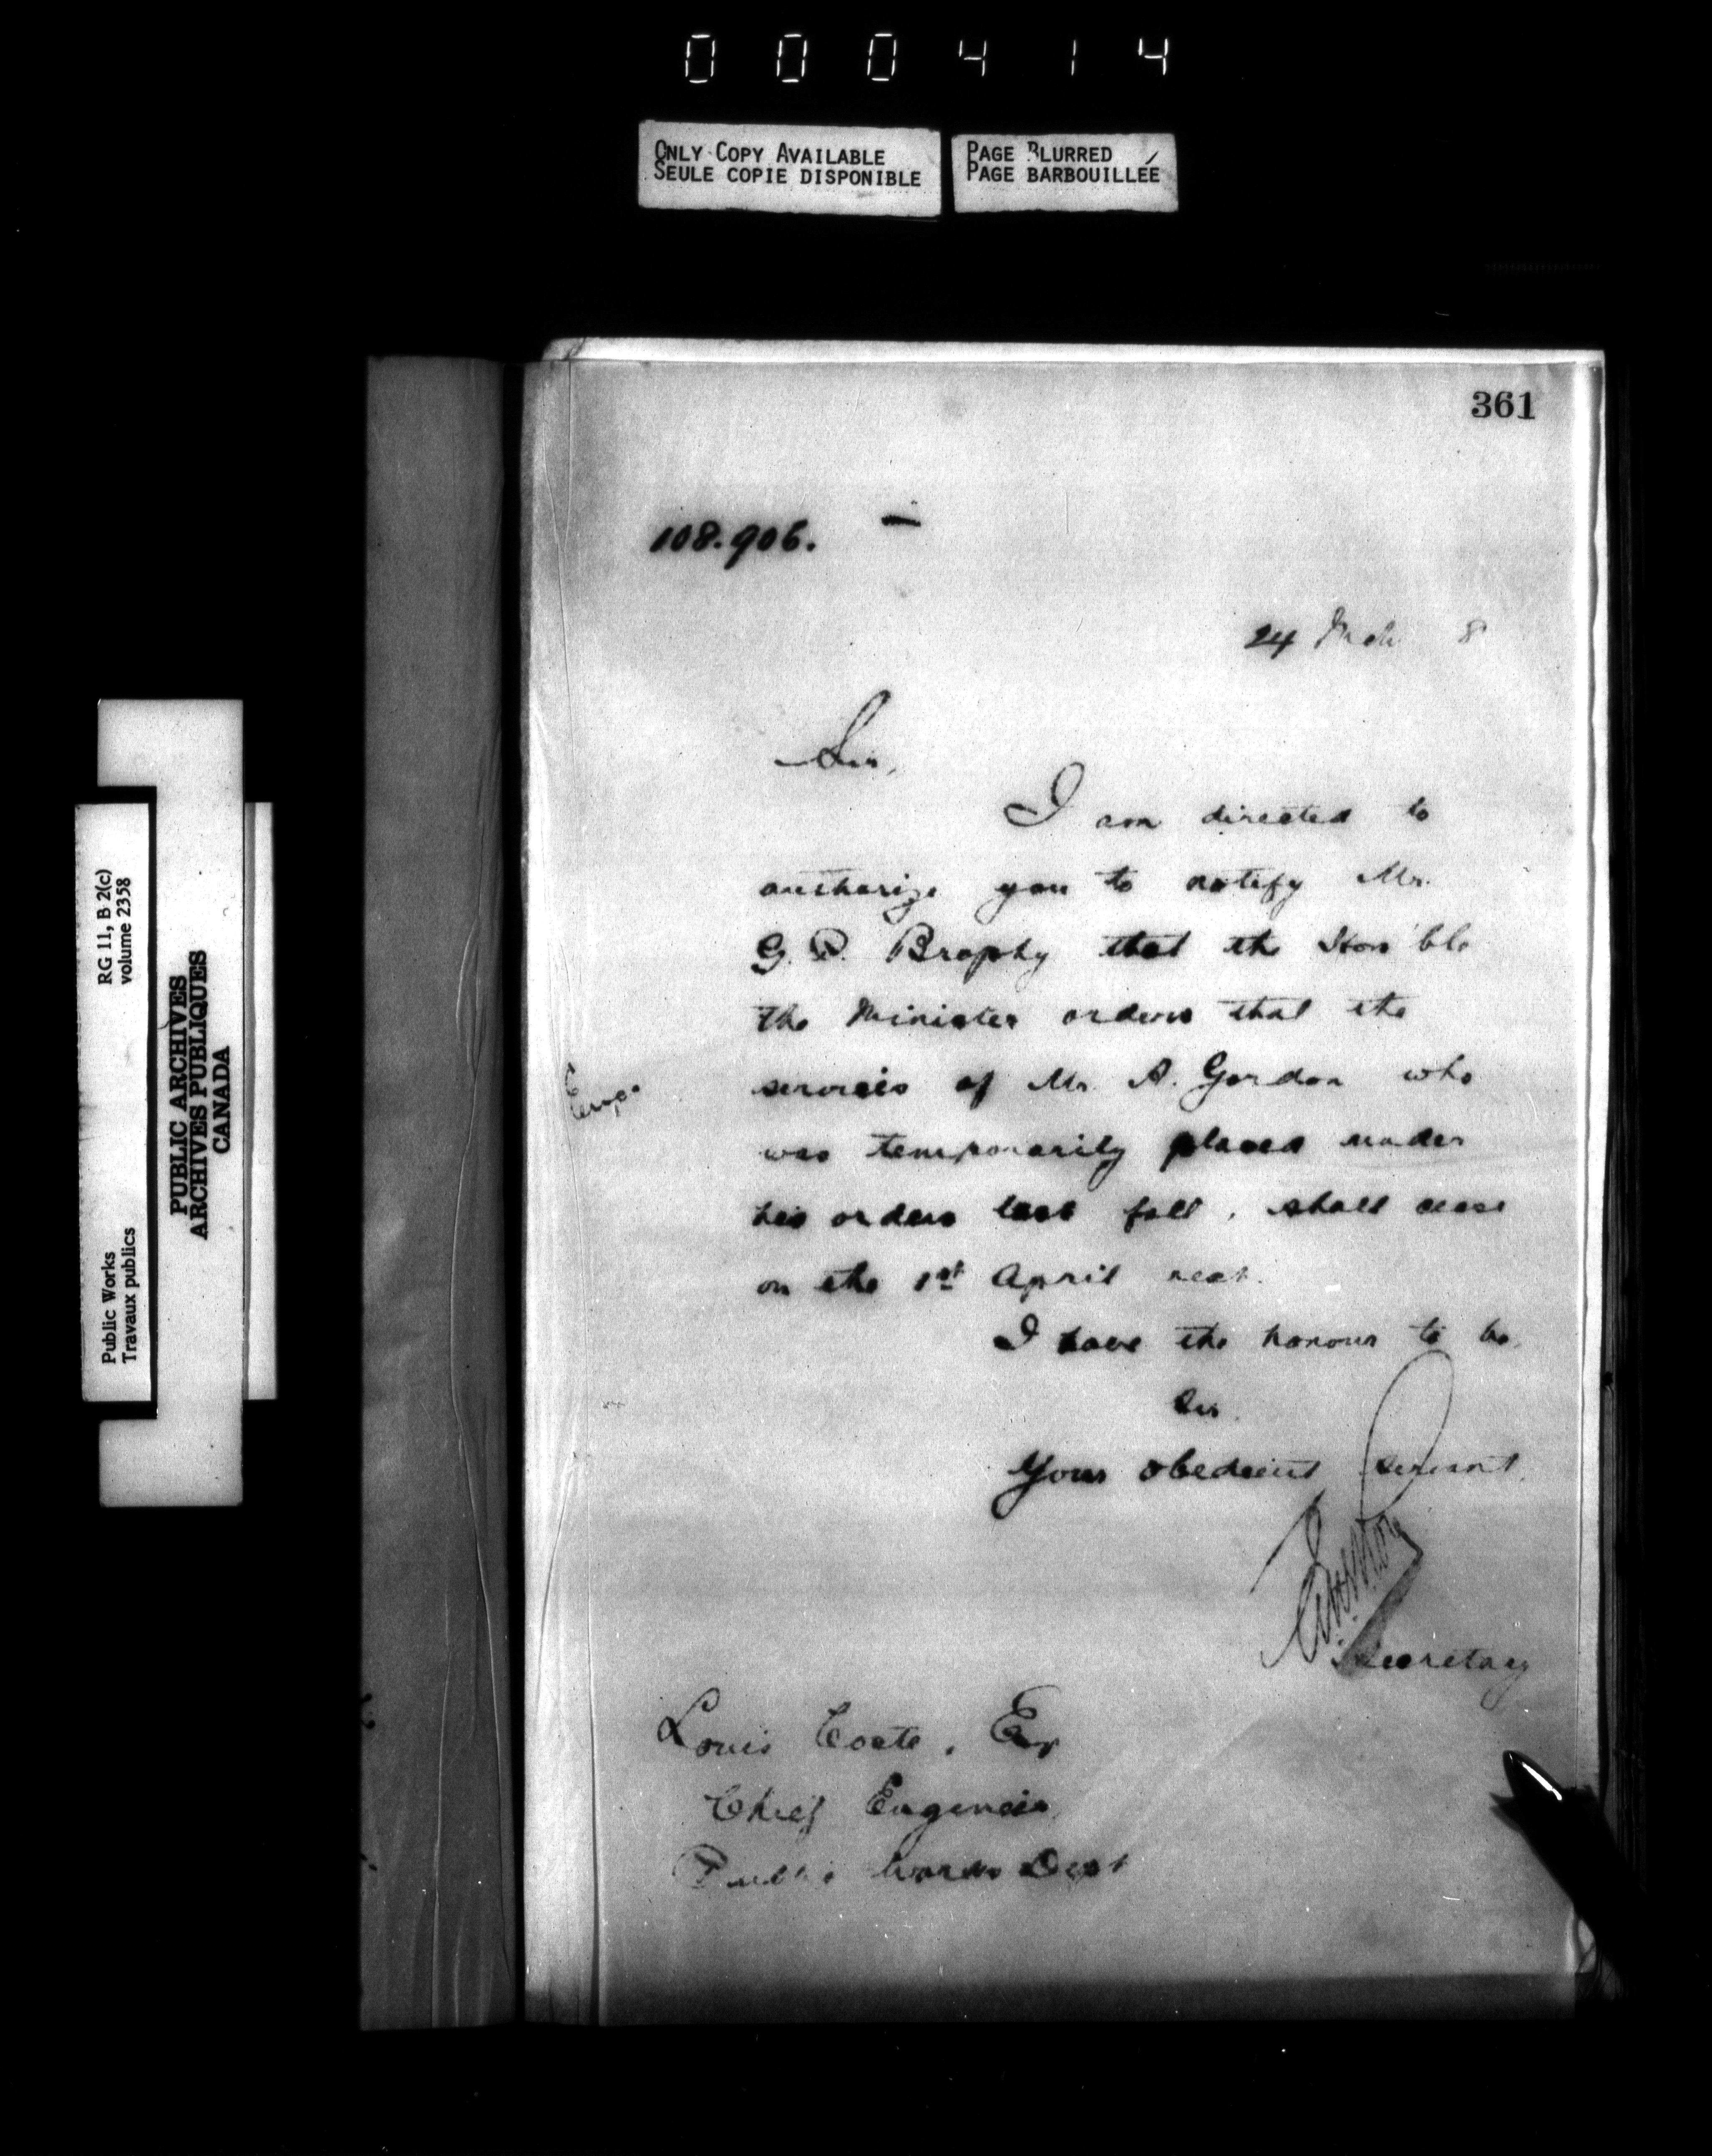 000414
ONLY COPY AVAILABLE
SEULE COPIE DISPONIBLE
PAGE BLURRED
PAGE BARBOUILLÉE
RG 11, B 2(c)
volume 2358
Public Works
Travaux publics
PUBLIC ARCHIVES
ARCHIVES PUBLIQUES
CANADA
361
108.906.
24 Mch 8
Sir,
I am directed to
authorize you to notify Mr.
G. P. Brophy that the Hon'ble
the Minister orders that the
services of Mr. A. Gordon who
was temporarily placed under
his orders last fall, shall cease
on the 1st April next.
I have the honour to be,
Sir,
Your obedient servant,
Secretary
Louis Coste, Esq
Chief Engineer
Public Works Dept